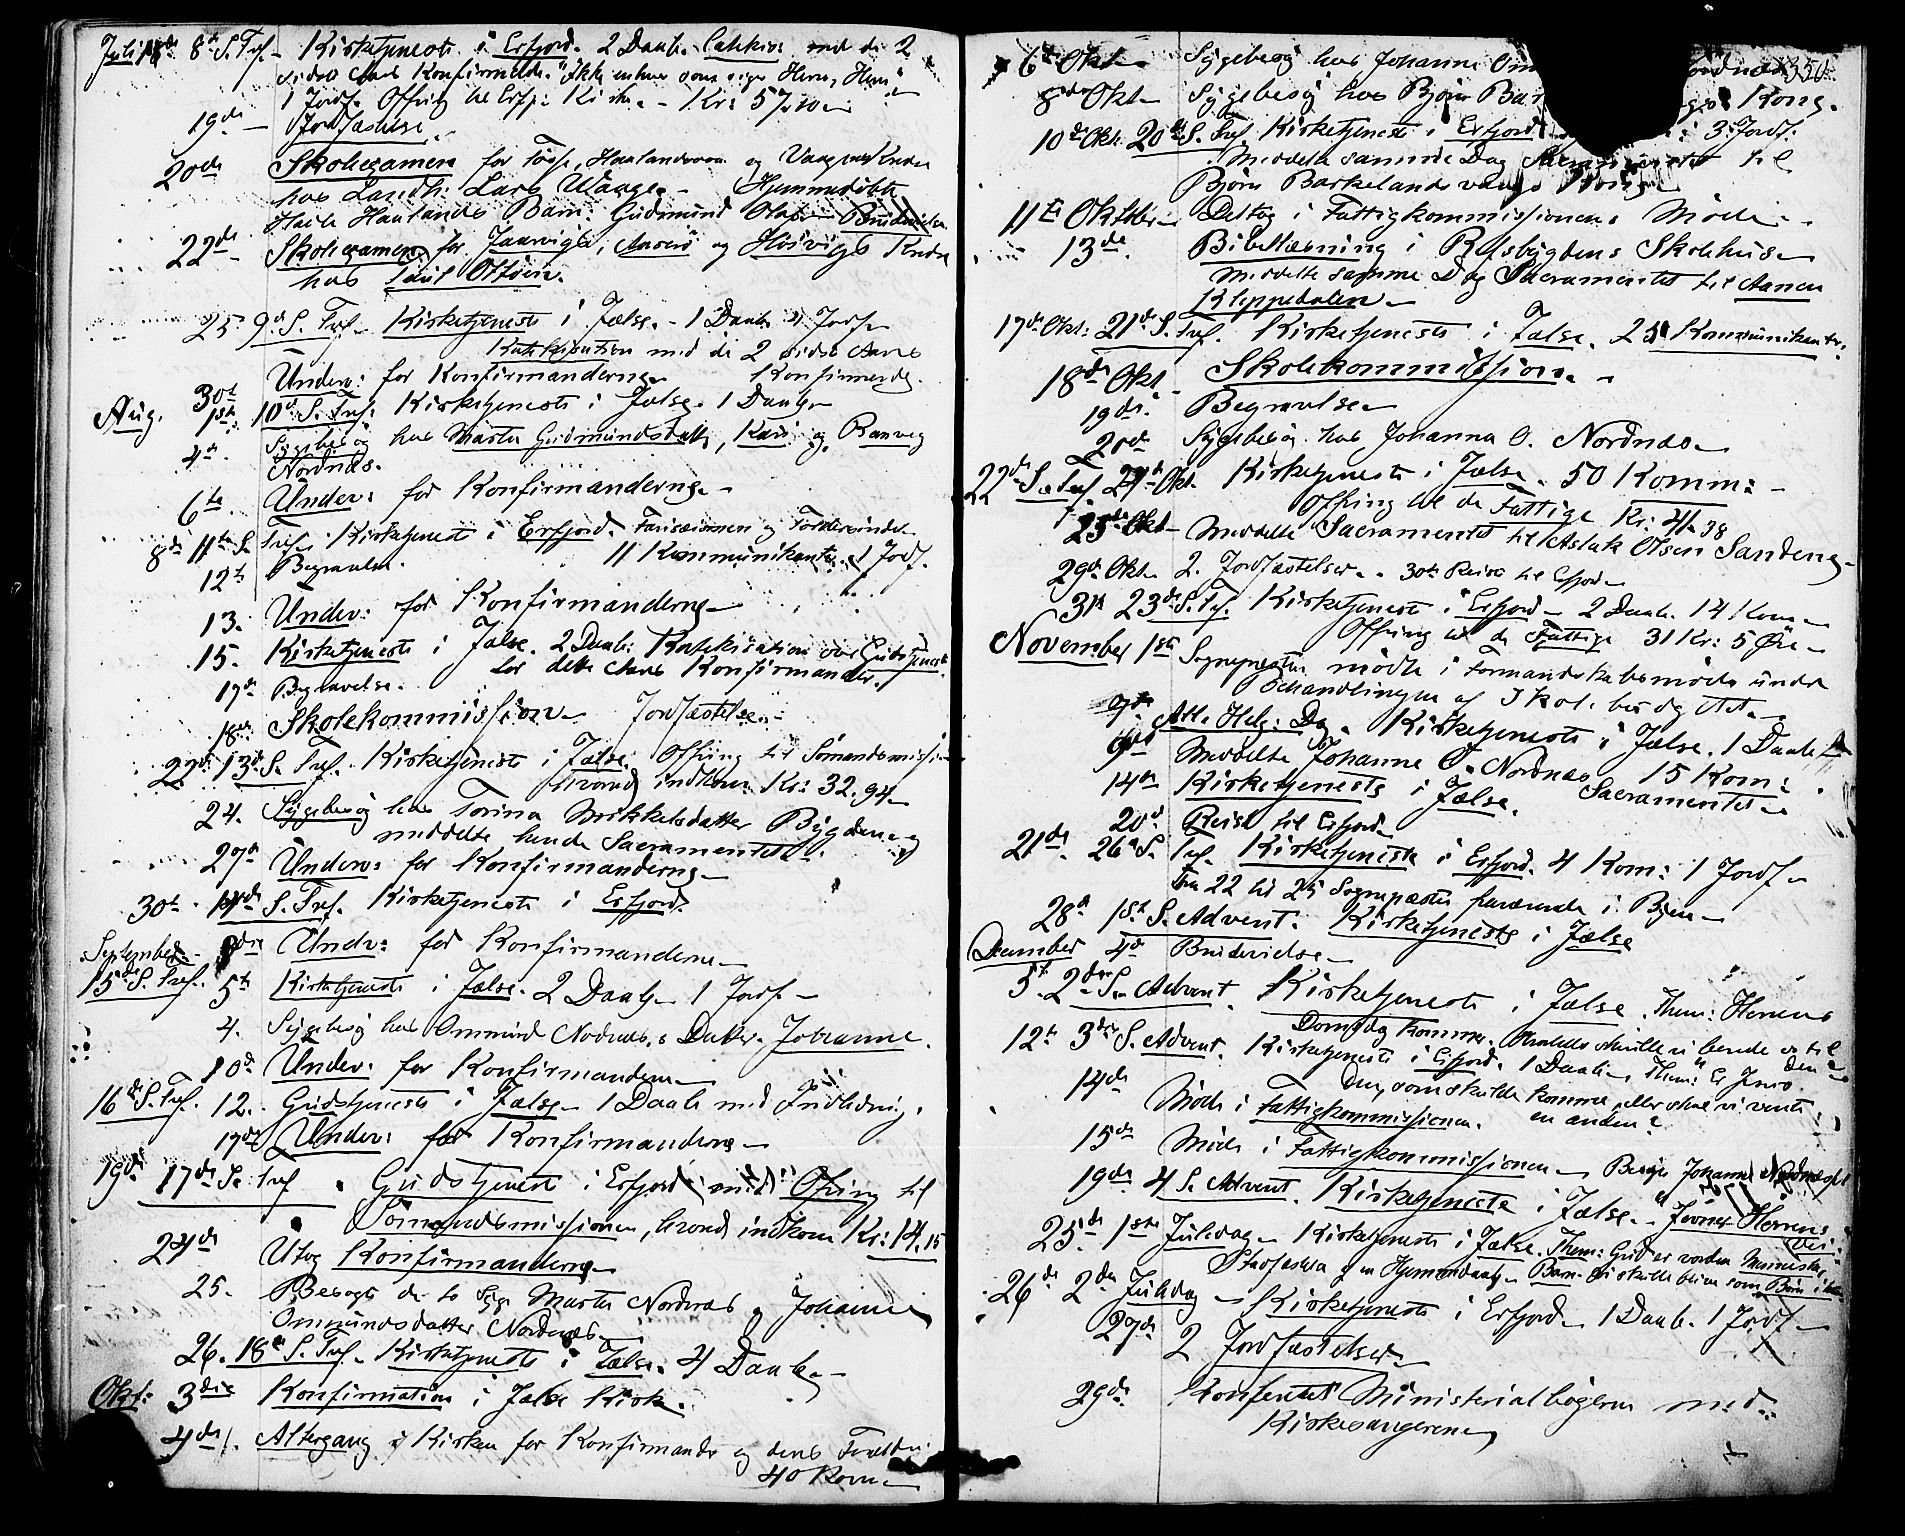 Juli 18de 8de S. Tref. Kirketjeneste i Erfjord. 2 Daab. Catekis: med de 2
sidste Aars Konfirmede. "Ikke enhver som siger Herre, Herre"
1 Jordf. Offring til Erfj: Kirke. - Kr: 57.10
19de Jordfæstelse.
20de Skoleexamen for Foss, Haalandsvaa og Vaagenes Kreds
hos Landh. Lars Waage. - Hjemmedøbte
Haile Haalands Barn. Gudmund Olsen Brudevielse
22de Skoleexamen for Jaarvigs, Aarø og Høsvigs Kreds
hos Ottøen.
25 9de S. Tref. Kirketjeneste i Jælse. - 1 Daab 4 Jordf.
Katekisation med de 2 sidste Aars
Konfirmerede.
30te Underv: for Konfirmanderne
Aug. 1ste 10de S. Tref: Kirketjeneste i Jælse. 1 Daab
4de Sygebesøg hos Marta Gudmundsdatt, Kari og Ranveg
Nordnæs.
6te Underv: for Konfirmanderne. -
8de 11te S. Tref. Kirketjeneste i Erfjord. Farisæeren og Tolderen
11 Kommunikanter. 1 Jordf.
12te Begravelse.
13. Underv: for Konfirmanderne
15. Kirketjeneste i Jælse. 2 Daab: Katekisation over Gudstjeneste
for dette Aars Konfirmander.
17de Begravelse.
18de Skolekommission - Jordfæstelse. -
22de 13de S. Tref. Kirketjeneste i Jælse. Offring til Sømandsmissi-
hvorved indkom Kr: 32.94
24. Sygebesøg hos Torina Mikkelsdatter Bygdenes
meddelte hende Sacramentet.
27de Underv: for Konfirmanderne
30te 14de S. Tref. Kirketjeneste i Erfjord.
September 3die Underv: for Konfirmanderne
15de S. Tref. 5te Kirketjeneste i Jælse. 2 Daab - 1 Jordf -
4. Sygebesøg hos Ommund Nordnæs, s Datter. Johanne.
10de Underv: for Konfirmanderne
16de S. Tref. 12. Gudstjeneste i Jælse - 1 Daab med Indledning.
17de Underv: for Konfirmanderne -
19de 17de S. Tref. Gudstjeneste i Erfjord med Ofring til
Sømandsmissionen, hvorved indkom Kr: 14.15
24de Utog Konfirmanderne
25. Besøgte de to Syge Marta Nordnæs og Johanne
Ommundsdatter Nordnæs
26. 18de S. Tref. - Kirketjeneste i Jælse. 4 Daab -
Okt: 3die Konfirmation i Jælse Kirke.
4de Altergang i Kirken for Konfirmander og deres Forældre
40 Kom.
350.
6te Okt. Sygebesøg hos Johanne Om Nordnæs
8de Okt. Sygebesøg hos Bjørn Bar Kong.
10de Okt. 20de S. Tref. Kirketjeneste i Erfjord 3 Jordf.
Meddelte samme Dag Sacramentet til
Bjørn Barkelandsvaags Kong
11te Oktober Deltog i Fattigkommissionens Møde -
13de Bibellæsning i Refsbygdens Skolehus
Meddelte samme Dag Sacramentet til Aanen
Kleppedalen
17de Okt: 21de S. Tref. Kirketjeneste i Jælse. 25 Kommunikanter.
18de Okt. Skolekommission. -
19de Begravelse
20de Sygebesøg hos Johanna O. Nordnæs
22de S. Tref. 24de Okt. Kirketjeneste i Jælse. 50 Komm: -
Offring til de Fattige Kr. 41.38
25de Okt Meddelte Sacramentet til Aslak Olsen Sandeng
29de Okt. 2. Jordfæstelser. 30te Reise til Erfjord
31te 23de S. Tref. Kirketjeneste i Erfjord - 2 Daab. 14 Kom -
Offring til de Fattige 31 Kr: 5 Øre
November 1ste Sognepresten mødte i Formandskabsmøde under
Behandlingen af Skolebudgettet.
7de Alle Helg: Dag. Kirketjeneste i Jælse. 1 Daab
9de Meddelte Johanne O. Nordnæs 15 Kom:
Sacramentet
14de Kirketjeneste i Jælse.
20de Reise til Erfjord
21de 26de S. Tref. Kirketjeneste i Erfjord. 4 Kom: 1 Jordf
Fra 22 til 25 Sognepresten fraværende i Byen
28de 1ste S. Advent. Kirketjeneste i Jælse
December 4de Brudevielse
5te 2den S. Advent. Kirketjeneste i Jælse. Them: Herrens
Domsdag kommer. Hvorledes skulle vi berede os til den
12te 3die S. Advent. Kirketjeneste i Erfjord. 1 Daab. Them: Er Jesus
Den, som skulde komme, eller skal vi vente
en anden?
14de Møde i Fattigkommissionen.
15de Møde i Fattigkommissionen - Besøgte Johanne Nordnæs
19de 4 S. Advent. Kirketjeneste i Jælse. "Jevner Herrens
Vei"
25de 1ste Juledag - Kirketjeneste i Jælse. Them: Gud er vorden Menneske,
Stadfæstelse af en Hjemmedaab. Barn. vi skulle blive som Børn
26de 2den Juledag - Kirketjeneste i Erfjord - 1 Daab. 1 Jordf
27de 2 Jordfæstelser
29de Konfereret Ministerialbøgerne med
Kirkesangerne